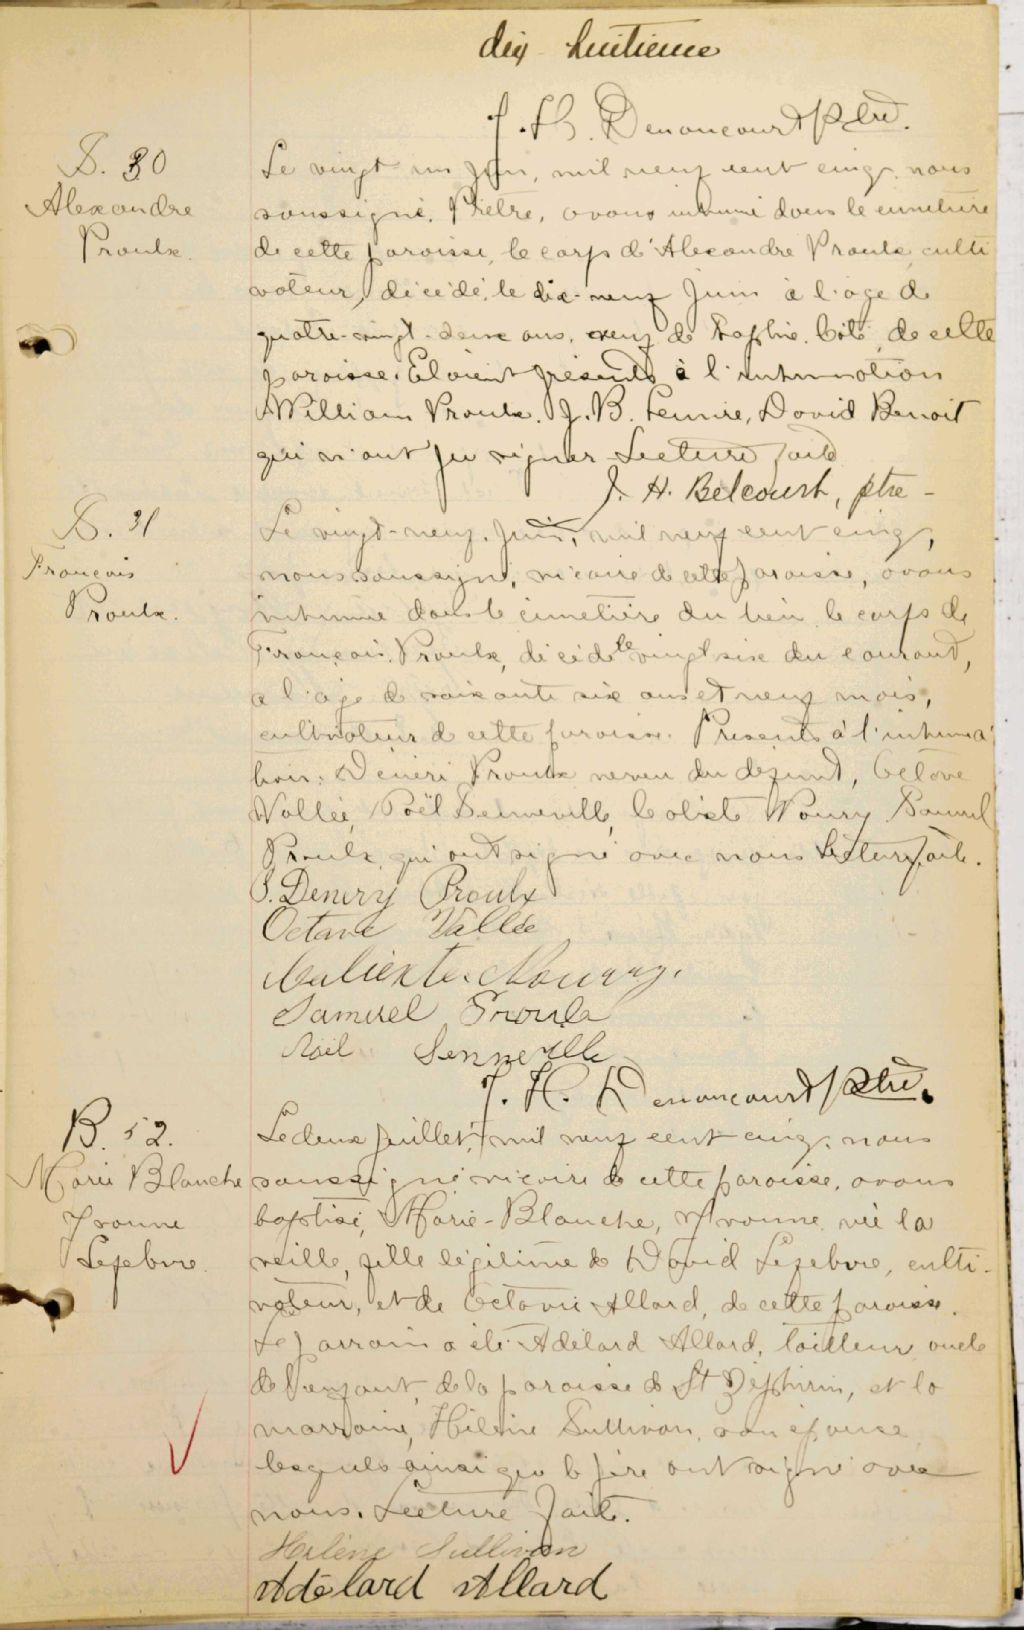 dix-huitième
J. H. Denoncourt Ptre.
S. 30
Alexandre
Proulx.
Le vingt un Juin, mil neuf cent cinq, nous
soussigné, Prêtre, avons inhumé dans le cimetière
de cette paroisse, le corps d'Alexandre Proulx, culti
vateur, décédé, le dix-neuf Juin à l'age de
quatre-vingt-deux ans, veuf de Sophie Coté, de cette
paroisse. Etaient présents à l'inhumation
William Proulx, J. B. Lemire, David Benoit
qui n'ont pu signer Lecture faite
J. H. Belcourt, ptre -
S. 31
François
Proulx.
Le vingt-neuf, Juin, mil neuf cent cinq,
nous soussigné, vicaire de cette paroisse, avons
inhumé dans le cimetière du lieu le corps de
François Proulx, décédé le vingt six du courant,
a l'age de soixante six ans et neuf mois,
cultivateur de cette paroisse. Présents à l'inhuma
tion: Deneri Proulx neveu du défunt, Octave
Vallée, Noël Senneville, Calixte Noury Samuel
Proulx qui ont signé avec nous Lecture faite.
J. Denery Proulx
Octave Vallée
Calixte Noury.
Samuel Proulx
Noël Senneville
J. H. Denoncourt Ptre.
B. 52.
Marie Blanche
Yvonne
Lefebvre.
Le deux Juillet, mil neuf cent cinq, nous
soussigné vicaire de cette paroisse, avons
baptisé, Marie-Blanche, Yvonne, née la
veille, fille légitime de David Lefebvre, culti-
vateur, et de Octavie Allard, de cette paroisse.
Le parrain a été Adélard Allard, tailleur oncle
de l'enfant, de la paroisse de St Zéphirin, et la
marraine, Hélène Sullivan, son épouse
lesquels ainsi que le père ont signé avec
nous. Lecture faite.
Hélène Sullivan
Adélard Allard